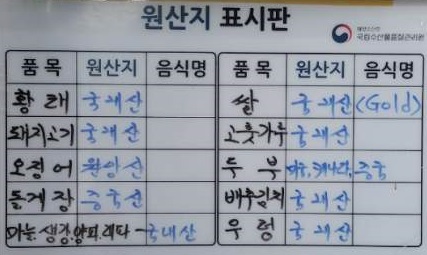 원산지 표시판
해양수산부
국립수산물품질관리원
품 목 원산지 음식명 품 목 원산지 음식명
황 태 국내산 쌀 국내산 (Gold)
돼지고기 국내산 고춧가루 국내산
오징어 원양산 두 부 미국, 캐나다, 중국
돌게장 중국산 배추김치 국내산
마늘, 생강, 양파, 대파 - 국내산 우렁 국내산